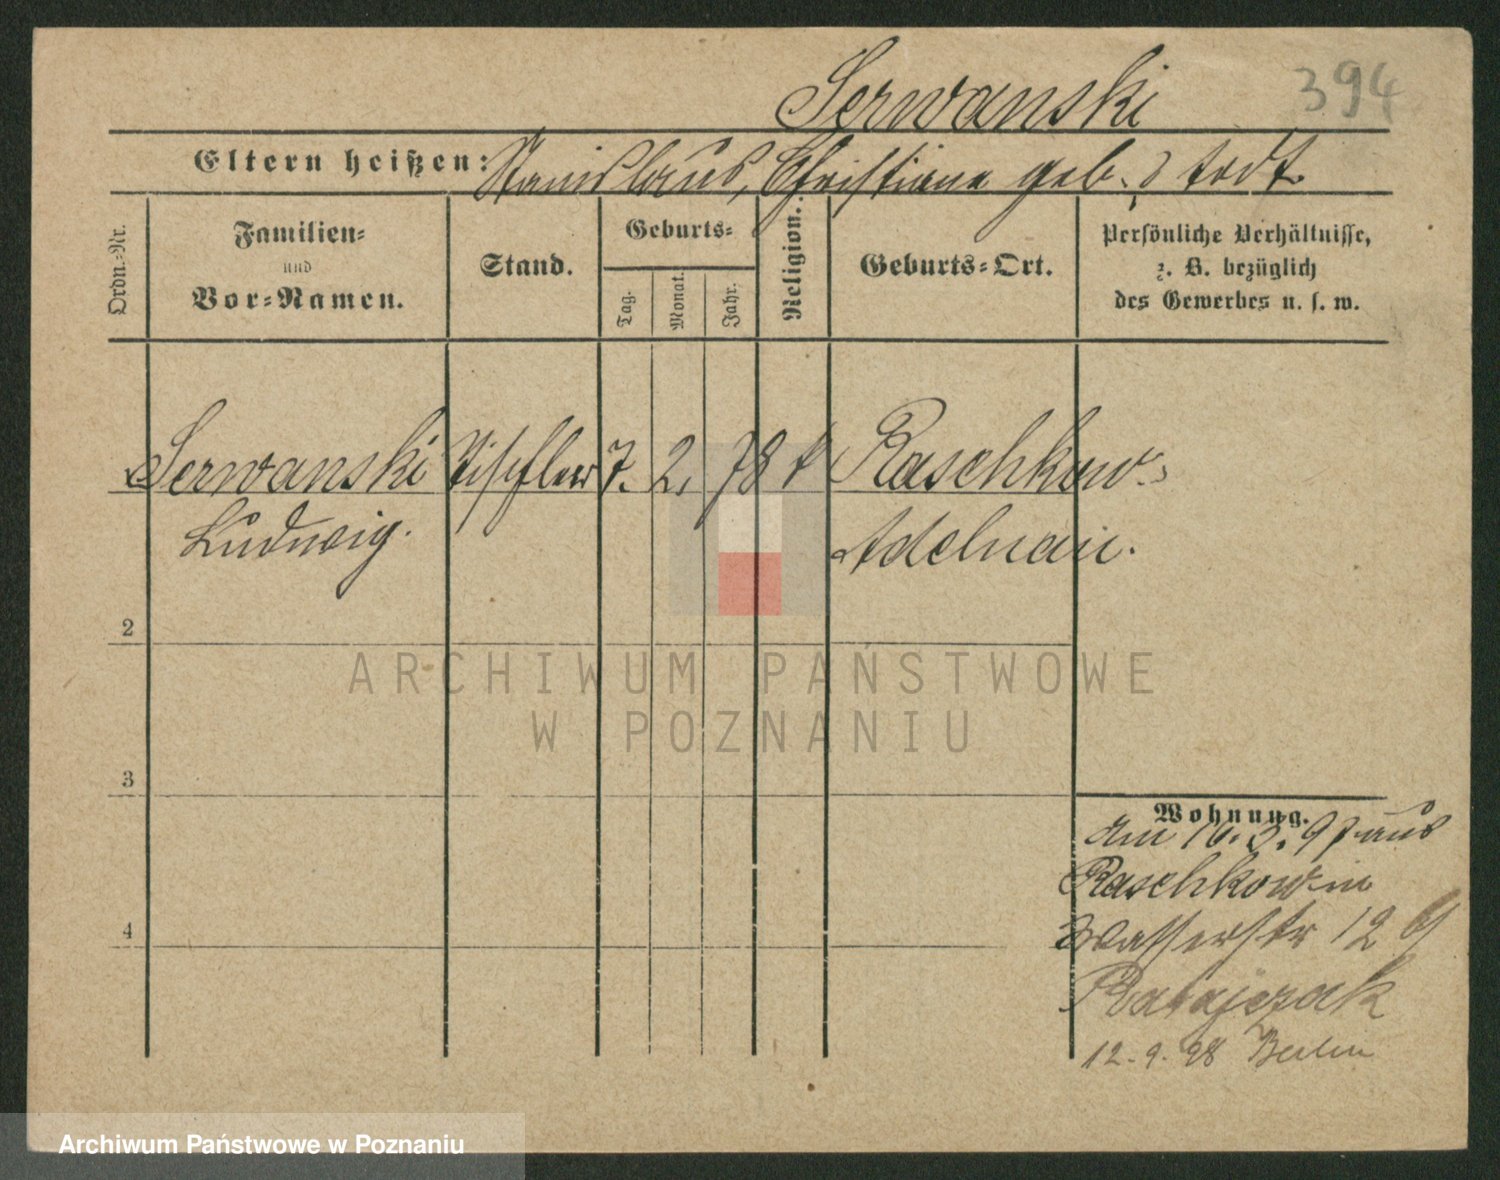 Serwanski
394
Eltern heißen: Stanislaus, Christiana geb. ? todt.
Ordn.-Nr.
Familien-
und
Vor-Namen.
Stand.
Geburts-
Tag.
Monat.
Jahr.
Religion.
Geburts-Ort.
Persönliche Verhältnisse,
z. B. bezüglich
des Gewerbes u. s. w.
Serwanski Tischler 7. 2. 78 k Raschkow
Ludwig. Adelnau.
2
3
4
Wohnung.
Am 16. 3. 97 aus
Raschkow in
Wasserstr 12
Ratajczak
12.9.98 Berlin
ARCHIWUM PAŃSTWOWE
W POZNANIU
Archiwum Państwowe w Poznaniu